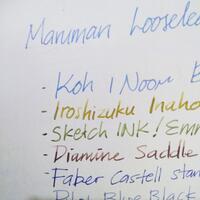 Maruman Loose
- Koh I Noor
- Iroshizuku Inaho
- Sketch INK!
- Diamine Saddle
- Faber Castell
Blue Black